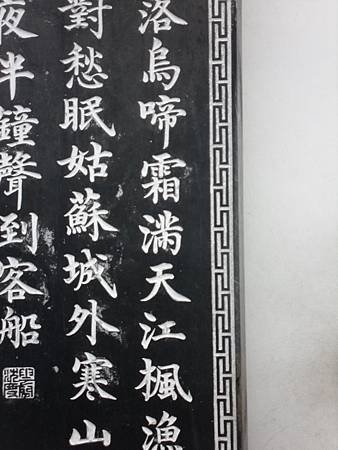 落烏啼霜滿天江楓漁
對愁眠姑蘇城外寒山
夜半鐘聲到客船